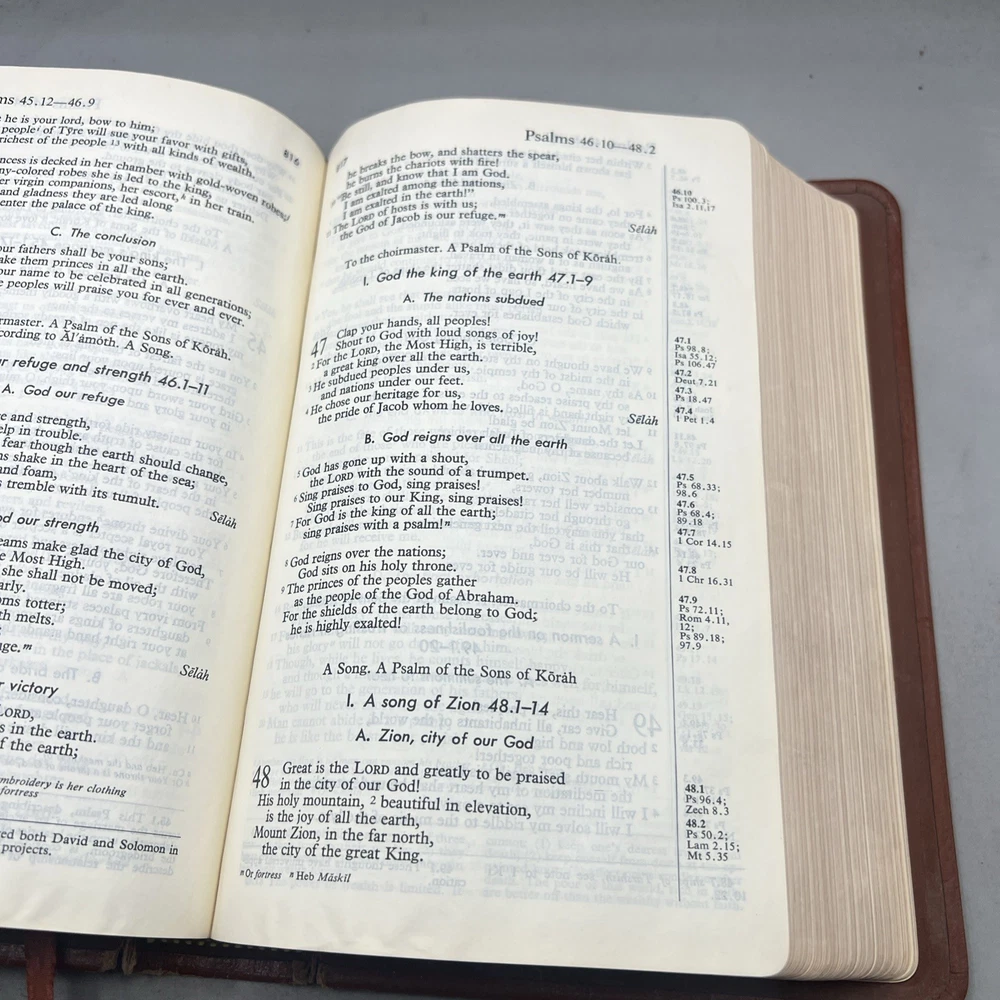 ms 45.12—46.9
816
he is your lord, bow to him;
people of Tȳre will sue your favor with gifts,
richest of the people 13 with all kinds of wealth.
ncess is decked in her chamber with gold-woven robes;
ny-colored robes she is led to the king,
er virgin companions, her escort, in her train.
and gladness they are led along
enter the palace of the king.
C. The conclusion
our fathers shall be your sons;
ake them princes in all the earth.
our name to be celebrated in all generations;
e peoples will praise you for ever and ever.
rmaster. A Psalm of the Sons of Kōrăh.
cording to Ăl′ămōth. A Song.
ur refuge and strength 46.1–11
A. God our refuge
e and strength,
elp in trouble.
fear though the earth should change,
ns shake in the heart of the sea;
and foam,
s tremble with its tumult.
Sēlăh
od our strength
eams make glad the city of God,
e Most High.
she shall not be moved;
arly.
oms totter;
th melts.
uge.m
Sēlăh
r victory
LORD,
s in the earth.
f the earth;
mbroidery is her clothing
fortress
ted both David and Solomon in
projects.
Psalms 46.10—48.2
817
he breaks the bow, and shatters the spear,
he burns the chariots with fire!
10 "Be still, and know that I am God.
I am exalted among the nations,
I am exalted in the earth!"
11 The LORD of hosts is with us;
the God of Jacob is our refuge.m
Sēlăh
To the choirmaster. A Psalm of the Sons of Kōrăh.
I. God the king of the earth 47.1–9
A. The nations subdued
47 Clap your hands, all peoples!
Shout to God with loud songs of joy!
2 For the LORD, the Most High, is terrible,
a great king over all the earth.
3 He subdued peoples under us,
and nations under our feet.
4 He chose our heritage for us,
the pride of Jacob whom he loves.
Sēlăh
B. God reigns over all the earth
5 God has gone up with a shout,
the LORD with the sound of a trumpet.
6 Sing praises to God, sing praises!
Sing praises to our King, sing praises!
7 For God is the king of all the earth;
sing praises with a psalm!n
8 God reigns over the nations;
God sits on his holy throne.
9 The princes of the peoples gather
as the people of the God of Abraham.
For the shields of the earth belong to God;
he is highly exalted!
A Song. A Psalm of the Sons of Kōrăh
I. A song of Zion 48.1–14
A. Zion, city of our God
48 Great is the LORD and greatly to be praised
in the city of our God!
His holy mountain, 2 beautiful in elevation,
is the joy of all the earth,
Mount Zion, in the far north,
the city of the great King.
m Or fortress n Heb Măskīl
46.10
Ps 100.3;
Isa 2.11,17
47.1
Ps 98.8;
Isa 55.12;
Ps 106.47
47.2
Deut 7.21
47.3
Ps 18.47
47.4
1 Pet 1.4
47.5
Ps 68.33;
98.6
47.6
Ps 68.4;
89.18
47.7
1 Cor 14.15
47.8
1 Chr 16.31
47.9
Ps 72.11;
Rom 4.11,
12;
Ps 89.18;
97.9
48.1
Ps 96.4;
Zech 8.3
48.2
Ps 50.2;
Lam 2.15;
Mt 5.35